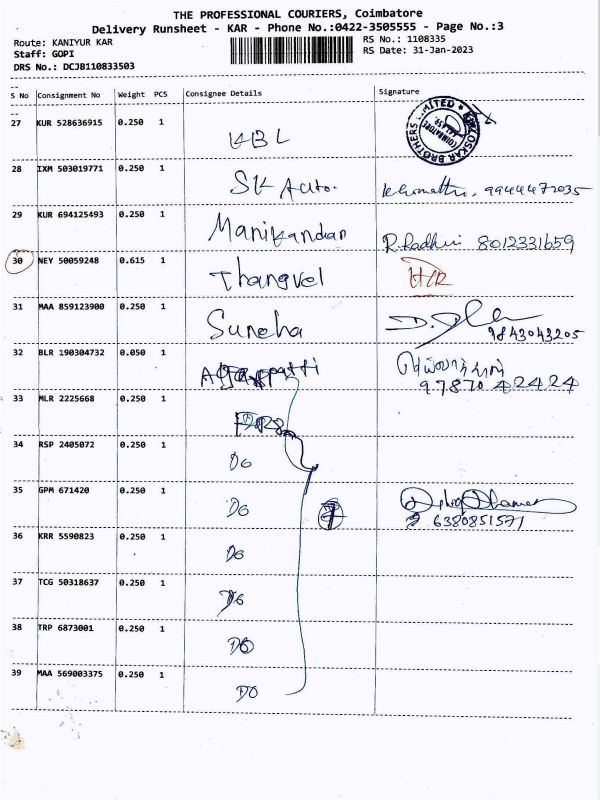 THE PROFESSIONAL COURIERS, Coimbatore
Delivery Runsheet - KAR - Phone No.:0422-3505555 - Page No.:3
Route: KANIYUR KAR
RS No.: 1108335
Staff: GOPI
RS Date: 31-Jan-2023
DRS No.: DCJB110833503
S No Consignment No Weight PCS Consignee Details Signature
27 KUR 528636915 0.250 1 KBL
KIRLOSKAR BROTHERS LIMITED
COIMBATORE
28 IXM 503019771 0.250 1 SK Auto. 9944472035
29 KUR 694125493 0.250 1 Manikandan R. Radhu 8012331659
30 NEY 50059248 0.615 1 Thangvel
31 MAA 859123900 0.250 1 Suneha 9843043205
32 BLR 190304732 0.050 1
97870 42424
33 MLR 2225668 0.250 1
34 RSP 2405072 0.250 1 DO
35 GPM 671420 0.250 1 DO 7
6380851571
36 KRR 5590823 0.250 1 DO
37 TCG 50318637 0.250 1 DO
38 TRP 6873001 0.250 1 DO
39 MAA 569003375 0.250 1 DO